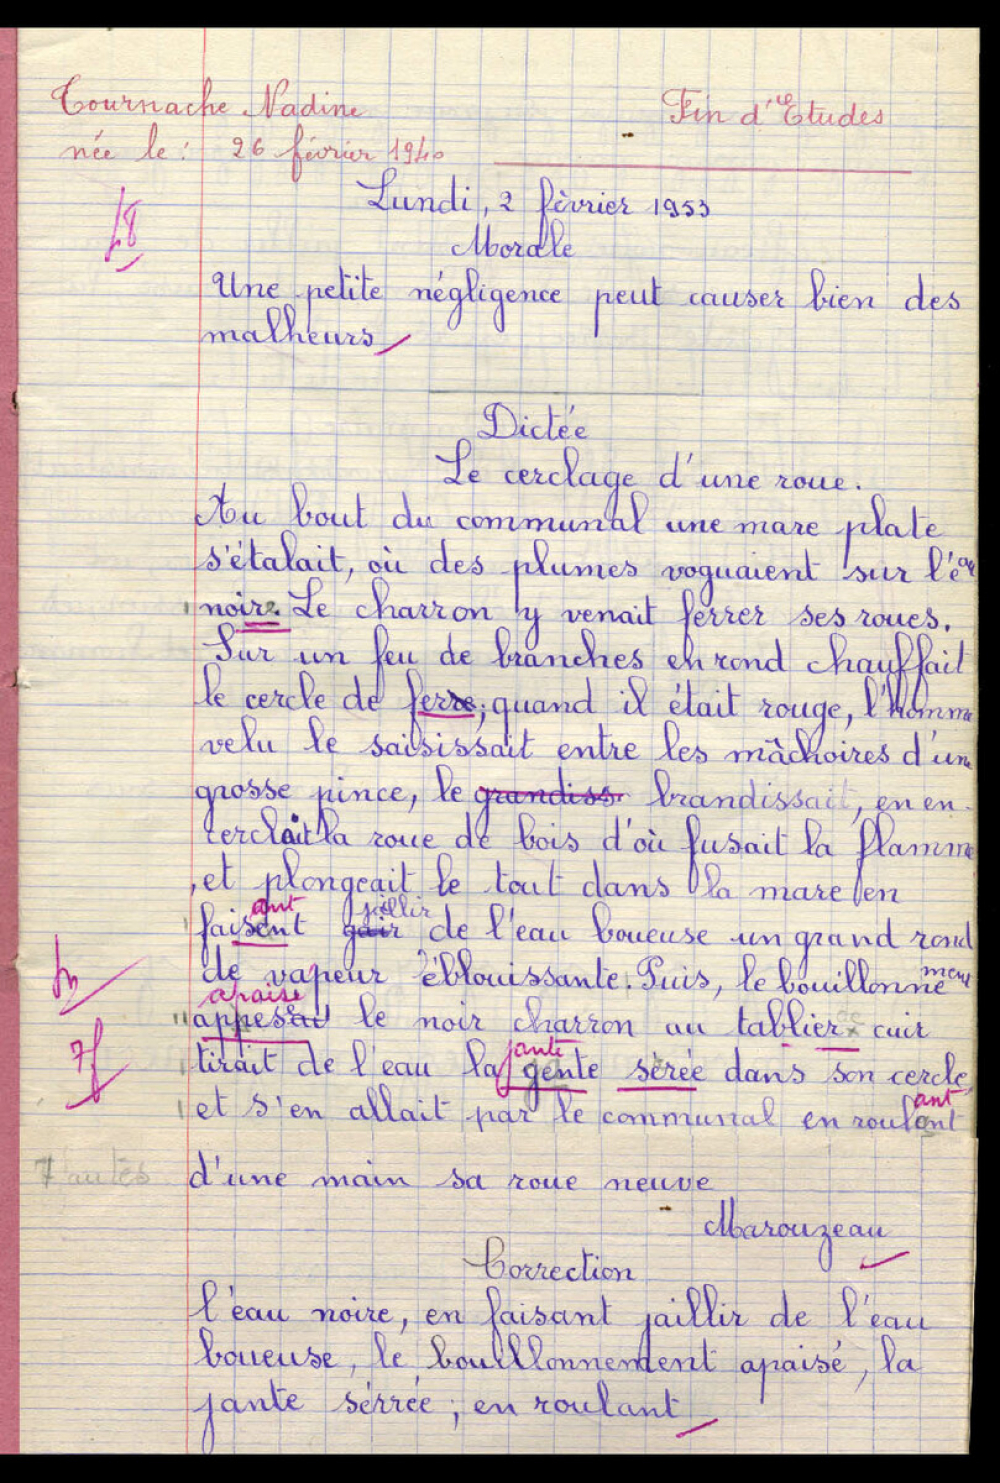 Tournache Nadine
Fin d'Etudes
née le : 26 février 1940
Lundi, 2 février 1953
Morale
Une petite négligence peut causer bien des
malheurs
Dictée
Le cerclage d'une roue.
Au bout du communal une mare plate
s'étalait, où des plumes voguaient sur l'eau
noire. Le charron y venait ferrer ses roues.
Sur un feu de branches en rond chauffait
le cercle de ferre, quand il était rouge, l'homme
velu le saisissait entre les mâchoires d'une
grosse pince, le grandiss brandissait, en en
cerclait la roue de bois d'où fusait la flamme
, et plongeait le tout dans la mare en
ant jaillir
faisent de l'eau boueuse un grand rond
de vapeur éblouissante. Puis, le bouillonnement
apaisé
le noir charron au tablier cuir
jante
tirait de l'eau la gente sèrée dans son cercle
ant
et s'en allait par le communal en roulent
7 fautes
d'une main sa roue neuve
Marouzeau
Correction
l'eau noire, en faisant jaillir de l'eau
boueuse, le bouillonnement apaisé, la
jante sérrée, en roulant